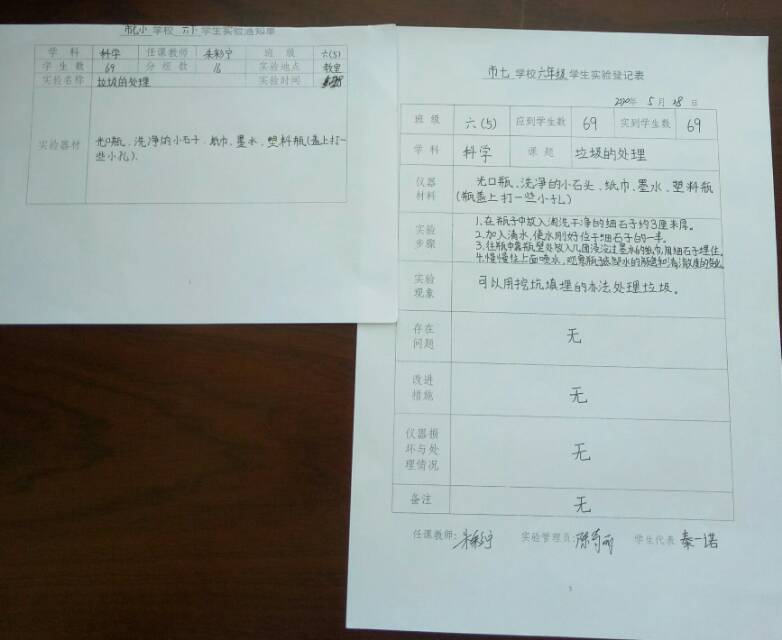 市七小 学校 六 学生实验通知单
学 科 科学 任课教师 朱彩宁 班 级 六(5)
学 生 数 69 分 组 数 16 实验地点 教室
实验名称 垃圾的处理 实验时间
实验器材 光口瓶、洗净的小石子、纸巾、墨水、塑料瓶(盖上打一
些小孔).
市七 学校六年级学生实验登记表
2020年 5 月 28 日
班 级 六(5) 应到学生数 69 实到学生数 69
学 科 科学 课 题 垃圾的处理
仪器
材料
光口瓶、洗净的小石头、纸巾、墨水、塑料瓶
(瓶盖上打一些小孔)
实验
步骤
1.在瓶子中放入淘洗干净的细石子约3厘米厚。
2.加入清水,使水刚好位于细石子的一半。
3.往瓶中靠瓶壁处放入几团浸过墨水的纸巾,用细石子埋住。
4.慢慢往上面喷水,观察瓶子底部水的颜色和清澈度的变化。
实验
现象
可以用挖坑填埋的办法处理垃圾。
存在
问题
无
改进
措施
无
仪器损
坏与处
理情况
无
备注 无
任课教师: 朱彩宁 实验管理员: 学生代表 秦一诺